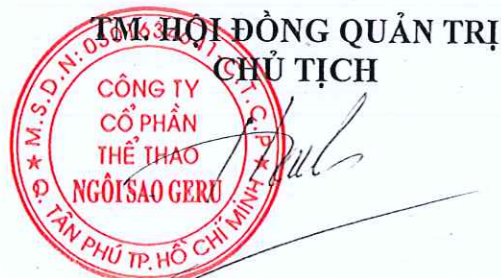 TM. HỘI ĐỒNG QUẢN TRỊ
CHỦ TỊCH
CÔNG TY
CỔ PHẦN
THỂ THAO
NGÔI SAO GERU
Q. TÂN PHÚ TP. HỒ CHÍ MINH